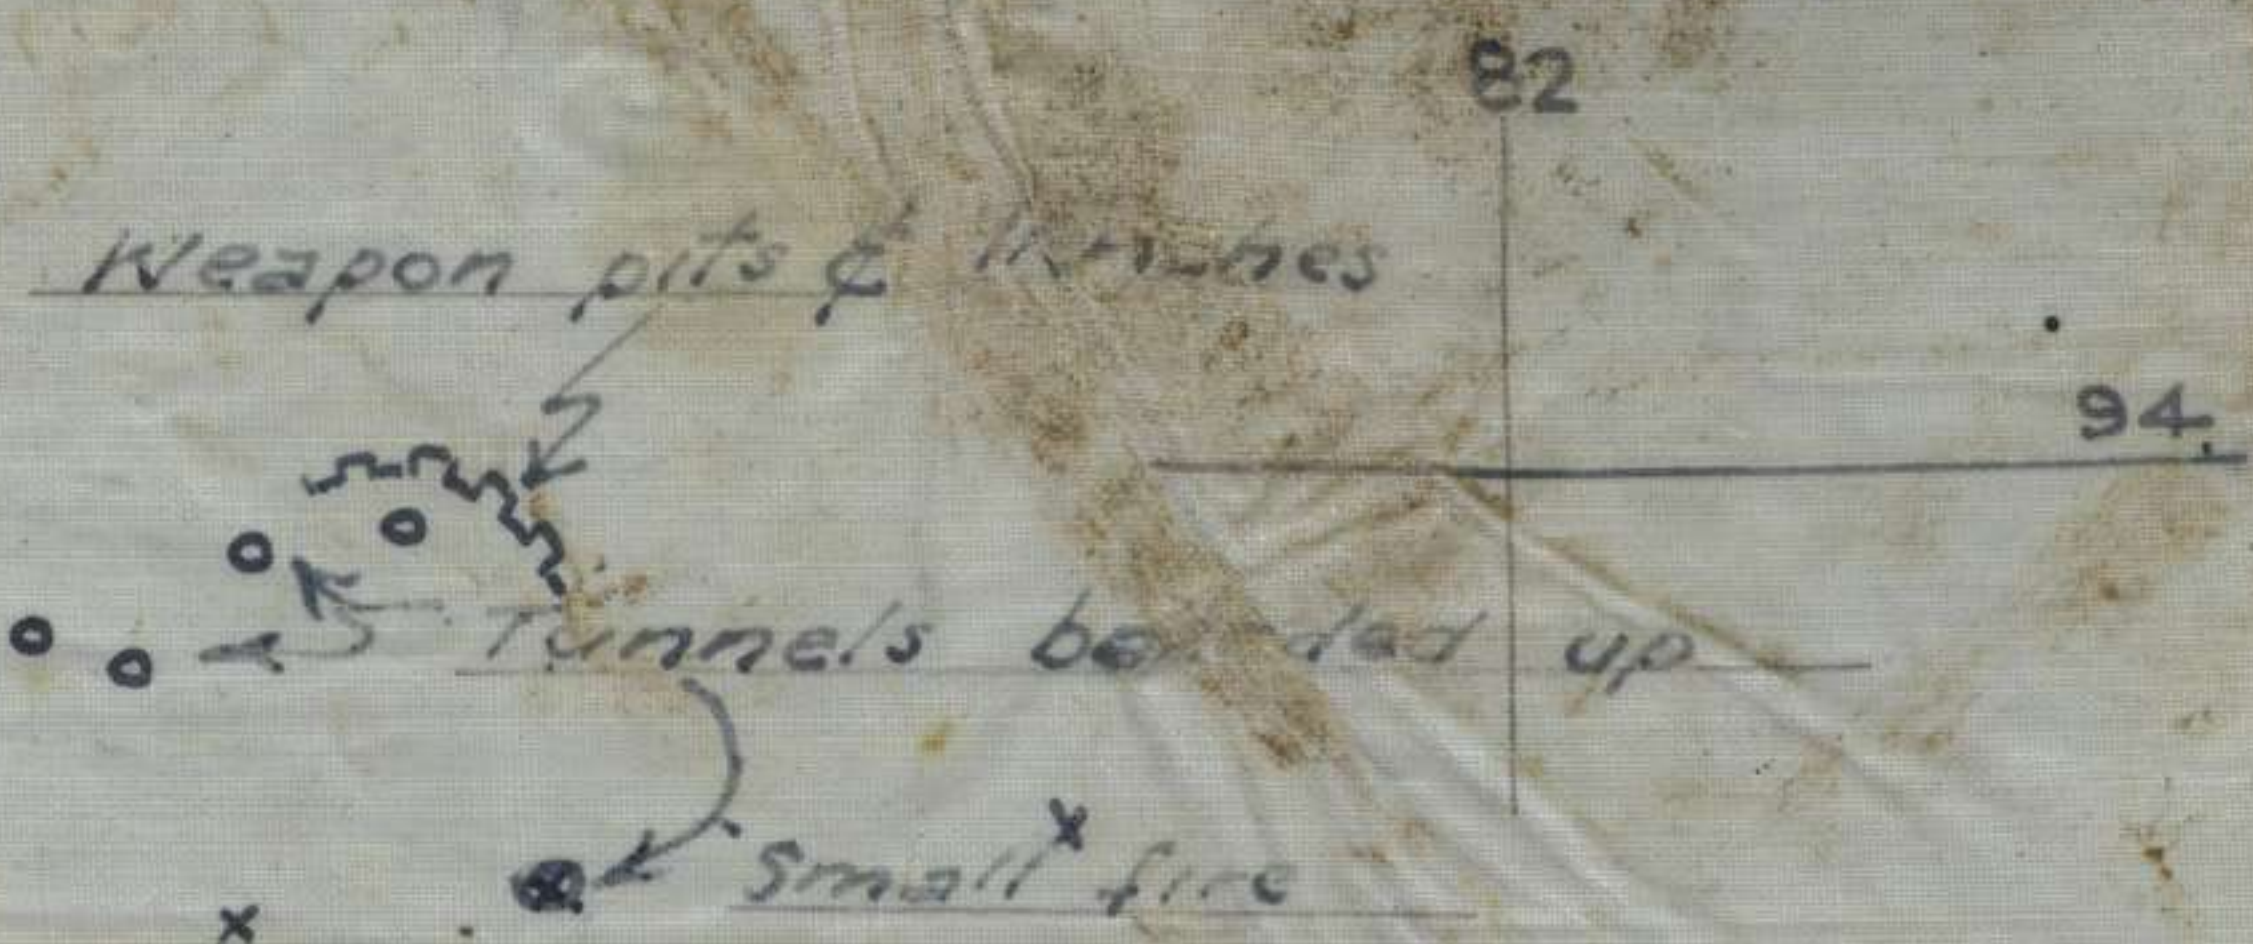 82
Weapon pits & trenches
94
Tunnels up
Small fire